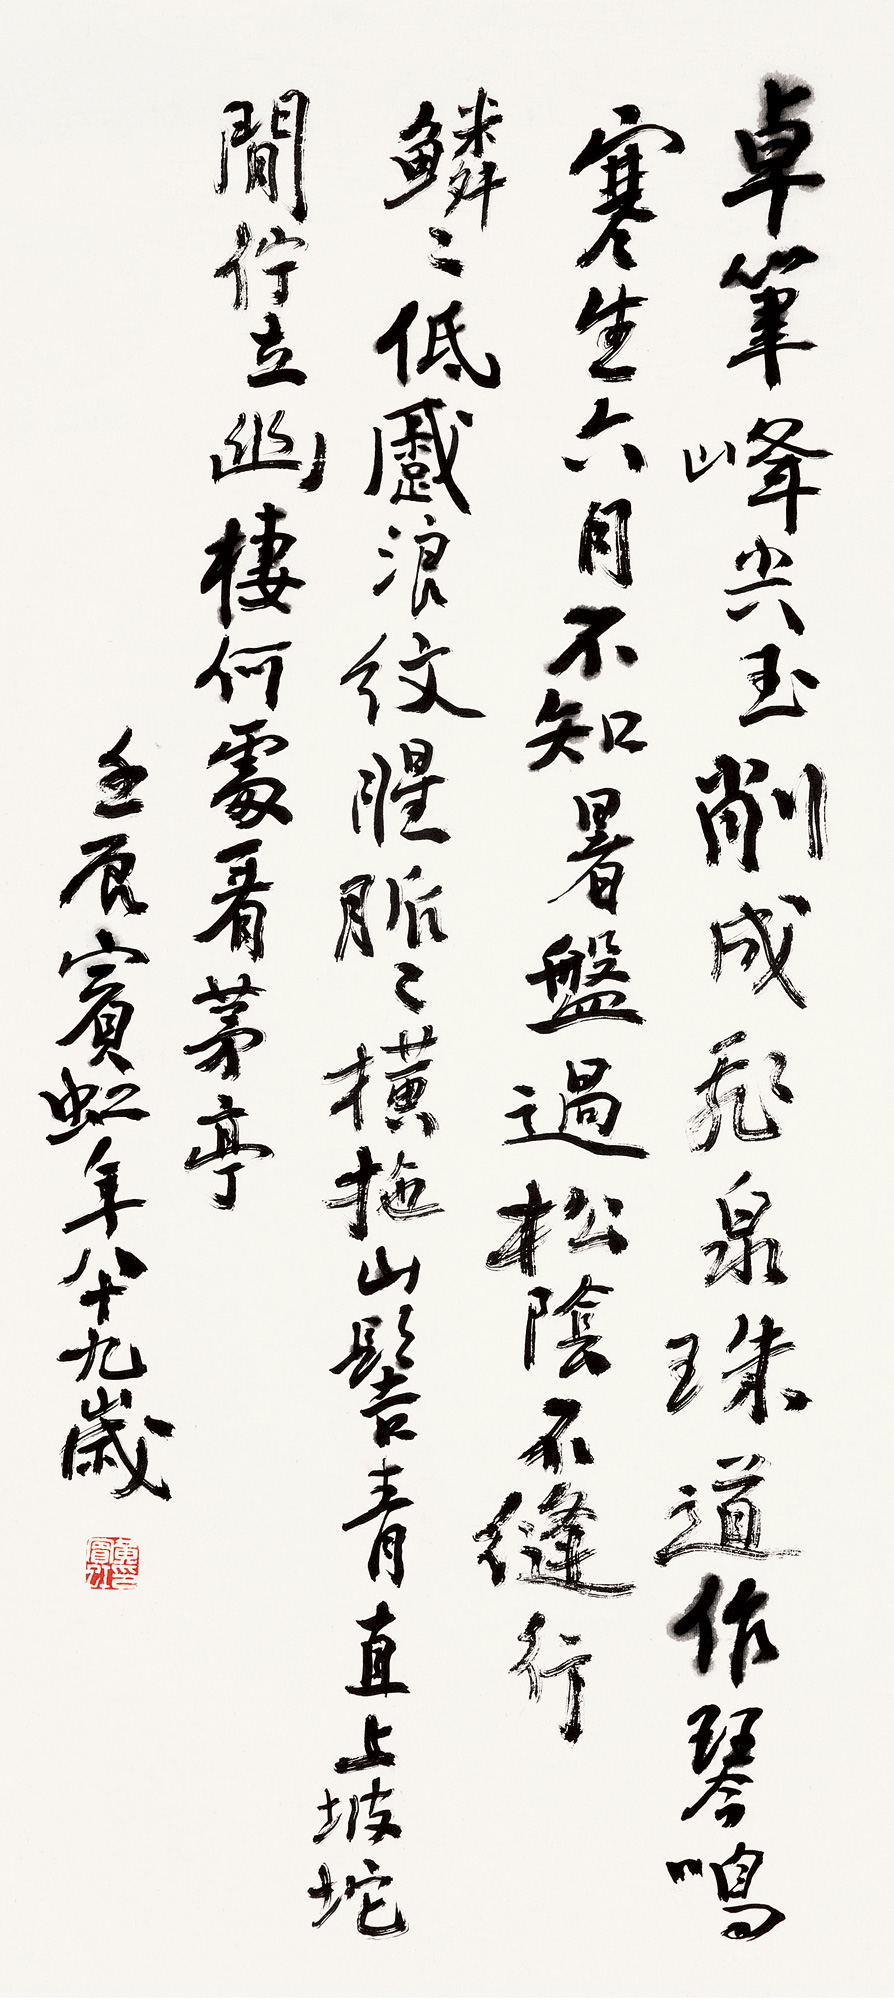 卓筆峰尖玉削成飛泉珠道作琴鳴
寒生六月不知暑盤過松陰不縫行
鱗〻低蹙浪紋腥脈〻橫拖山髻青直上坡坨
閒佇立幽棲何處看茅亭
壬辰賓虹年八十九歲